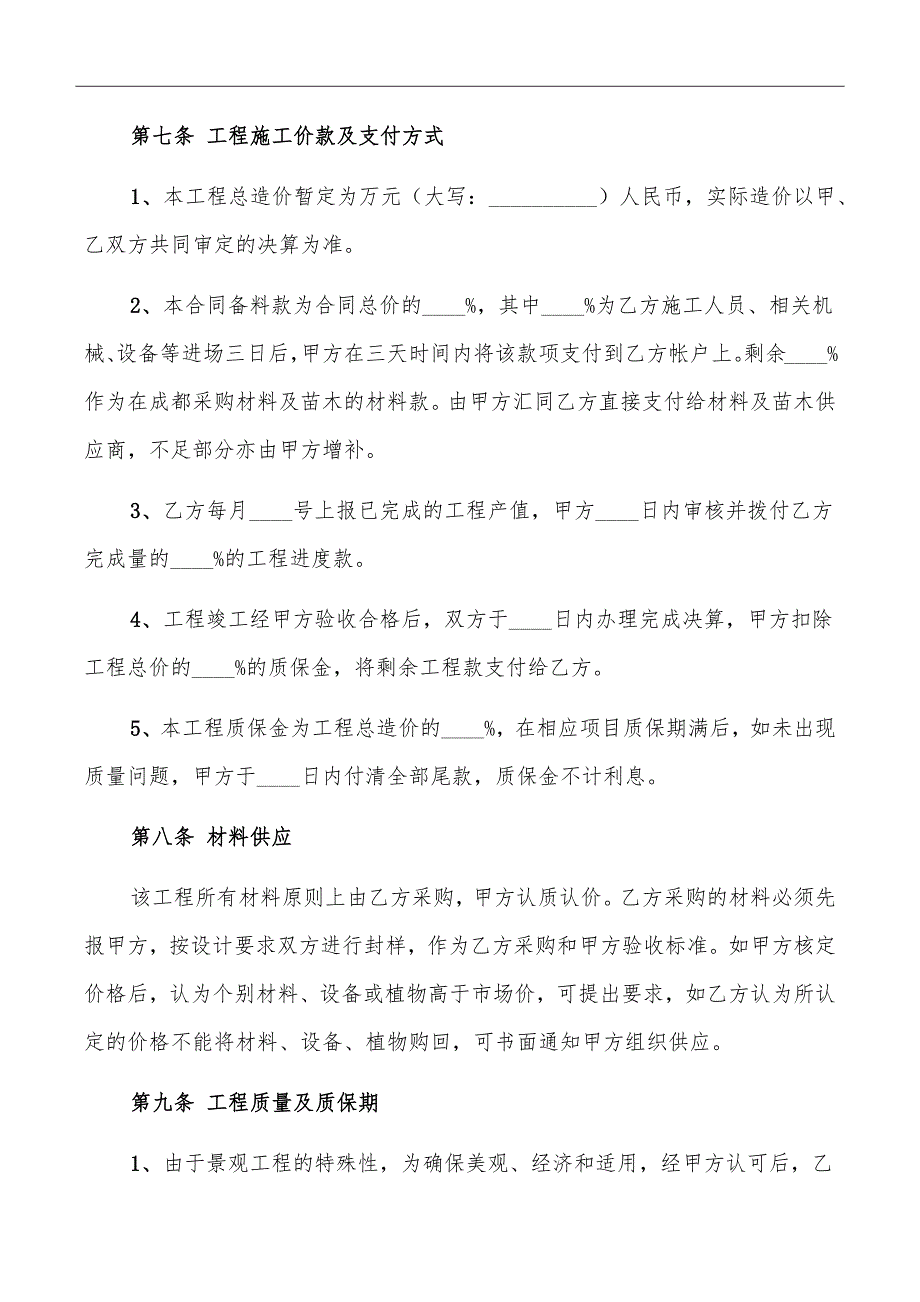 第七条 工程施工价款及支付方式
1、本工程总造价暂定为万元（大写：__________）人民币，实际造价以甲、
乙双方共同审定的决算为准。
2、本合同备料款为合同总价的____%，其中____%为乙方施工人员、相关机
械、设备等进场三日后，甲方在三天时间内将该款项支付到乙方帐户上。剩余____%
作为在成都采购材料及苗木的材料款。由甲方汇同乙方直接支付给材料及苗木供
应商，不足部分亦由甲方增补。
3、乙方每月____号上报已完成的工程产值，甲方____日内审核并拨付乙方
完成量的____%的工程进度款。
4、工程竣工经甲方验收合格后，双方于____日内办理完成决算，甲方扣除
工程总价的____%的质保金，将剩余工程款支付给乙方。
5、本工程质保金为工程总造价的____%，在相应项目质保期满后，如未出现
质量问题，甲方于____日内付清全部尾款，质保金不计利息。
第八条 材料供应
该工程所有材料原则上由乙方采购，甲方认质认价。乙方采购的材料必须先
报甲方，按设计要求双方进行封样，作为乙方采购和甲方验收标准。如甲方核定
价格后，认为个别材料、设备或植物高于市场价，可提出要求，如乙方认为所认
定的价格不能将材料、设备、植物购回，可书面通知甲方组织供应。
第九条 工程质量及质保期
1、由于景观工程的特殊性，为确保美观、经济和适用，经甲方认可后，乙